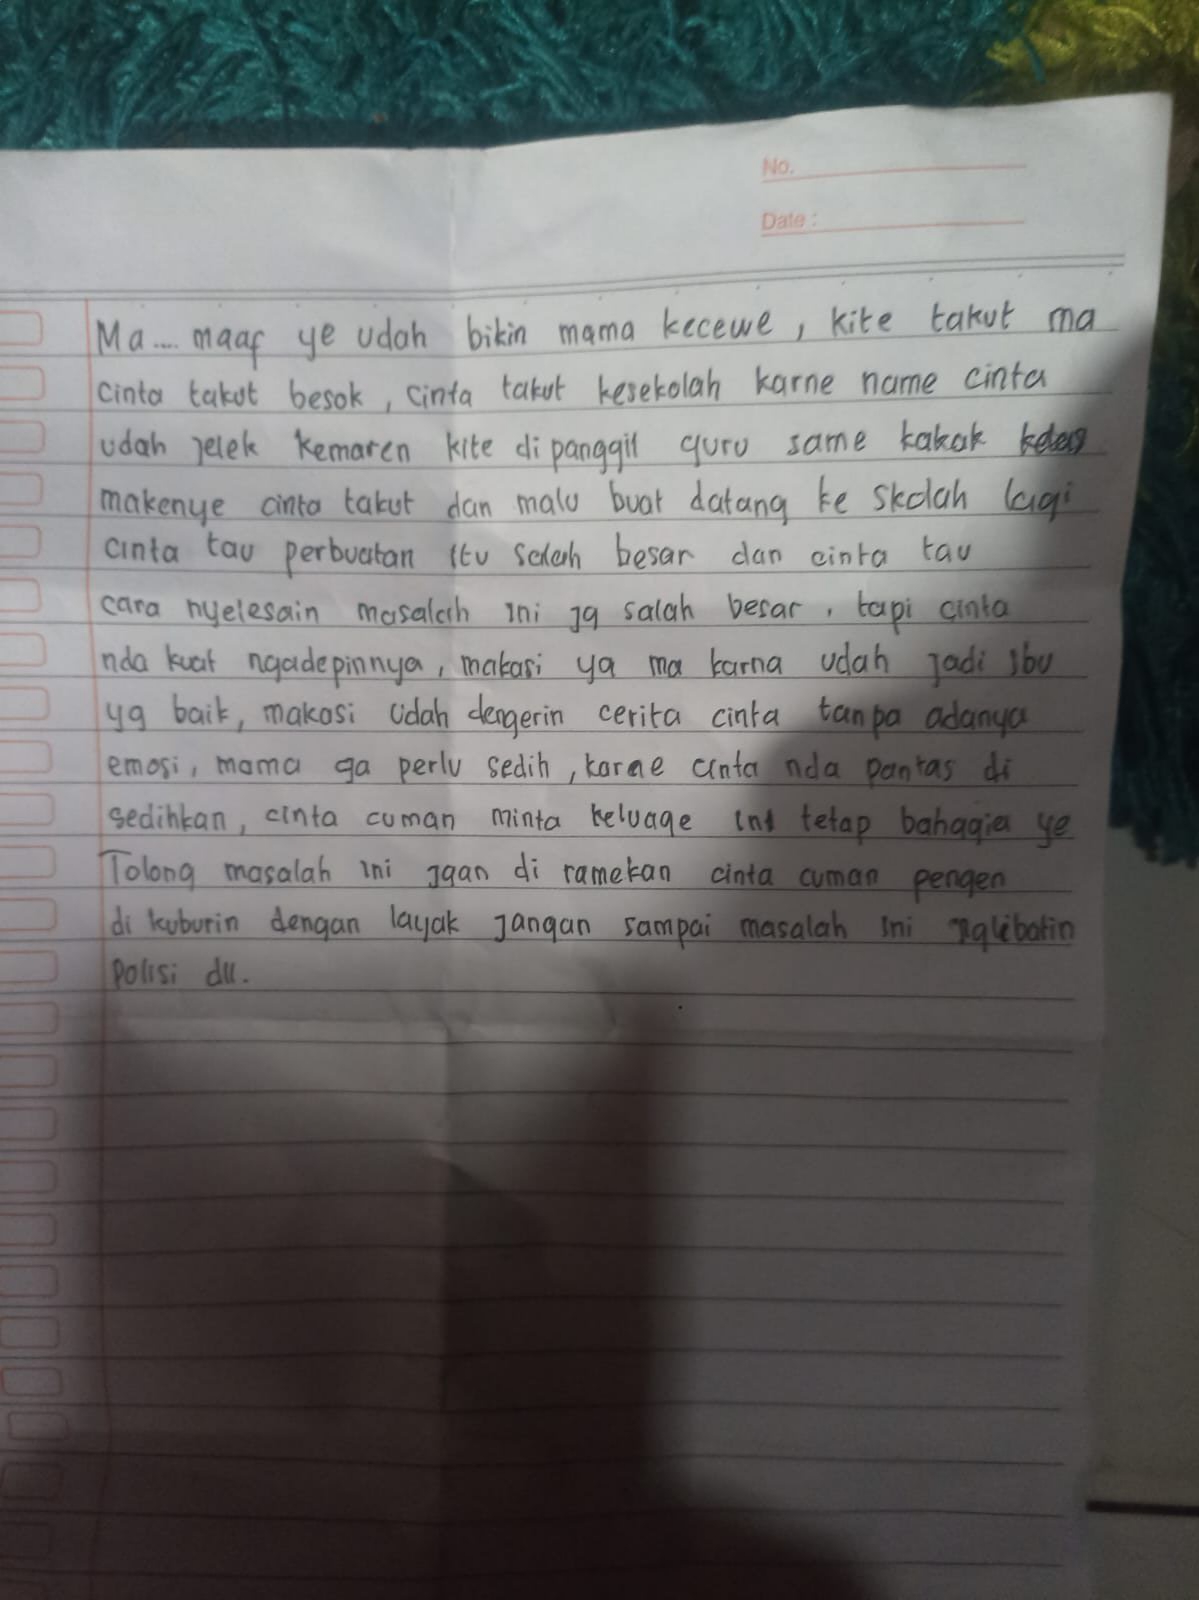 No.
Date :
Ma.... maaf ye udah bikin mama kecewe, kite takut ma
cinta takut besok, cinta takut kesekolah karne name cinta
udah jelek kemaren kite di panggil guru same kakak kelas
makenye cinta takut dan malu buat datang ke skolah lagi
cinta tau perbuatan itu salah besar dan cinta tau
cara nyelesain masalah ini jg salah besar, tapi cinta
nda kuat ngadepinnya, makasi ya ma karna udah jadi ibu
yg baik, makasi udah dengerin cerita cinta tanpa adanya
emosi, mama ga perlu sedih, karne cinta nda pantas di
sedihkan, cinta cuman minta keluage ini tetap bahagia ye
Tolong masalah ini jgan di ramekan cinta cuman pengen
di kuburin dengan layak jangan sampai masalah ini nglibatin
polisi dll.